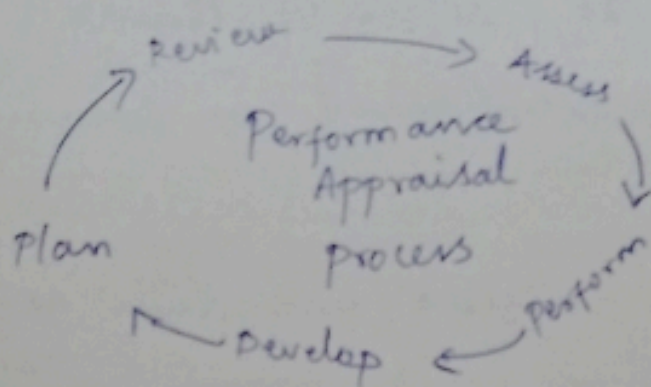 Review
Assess
Performance
Appraisal
process
Plan
perform
Develop